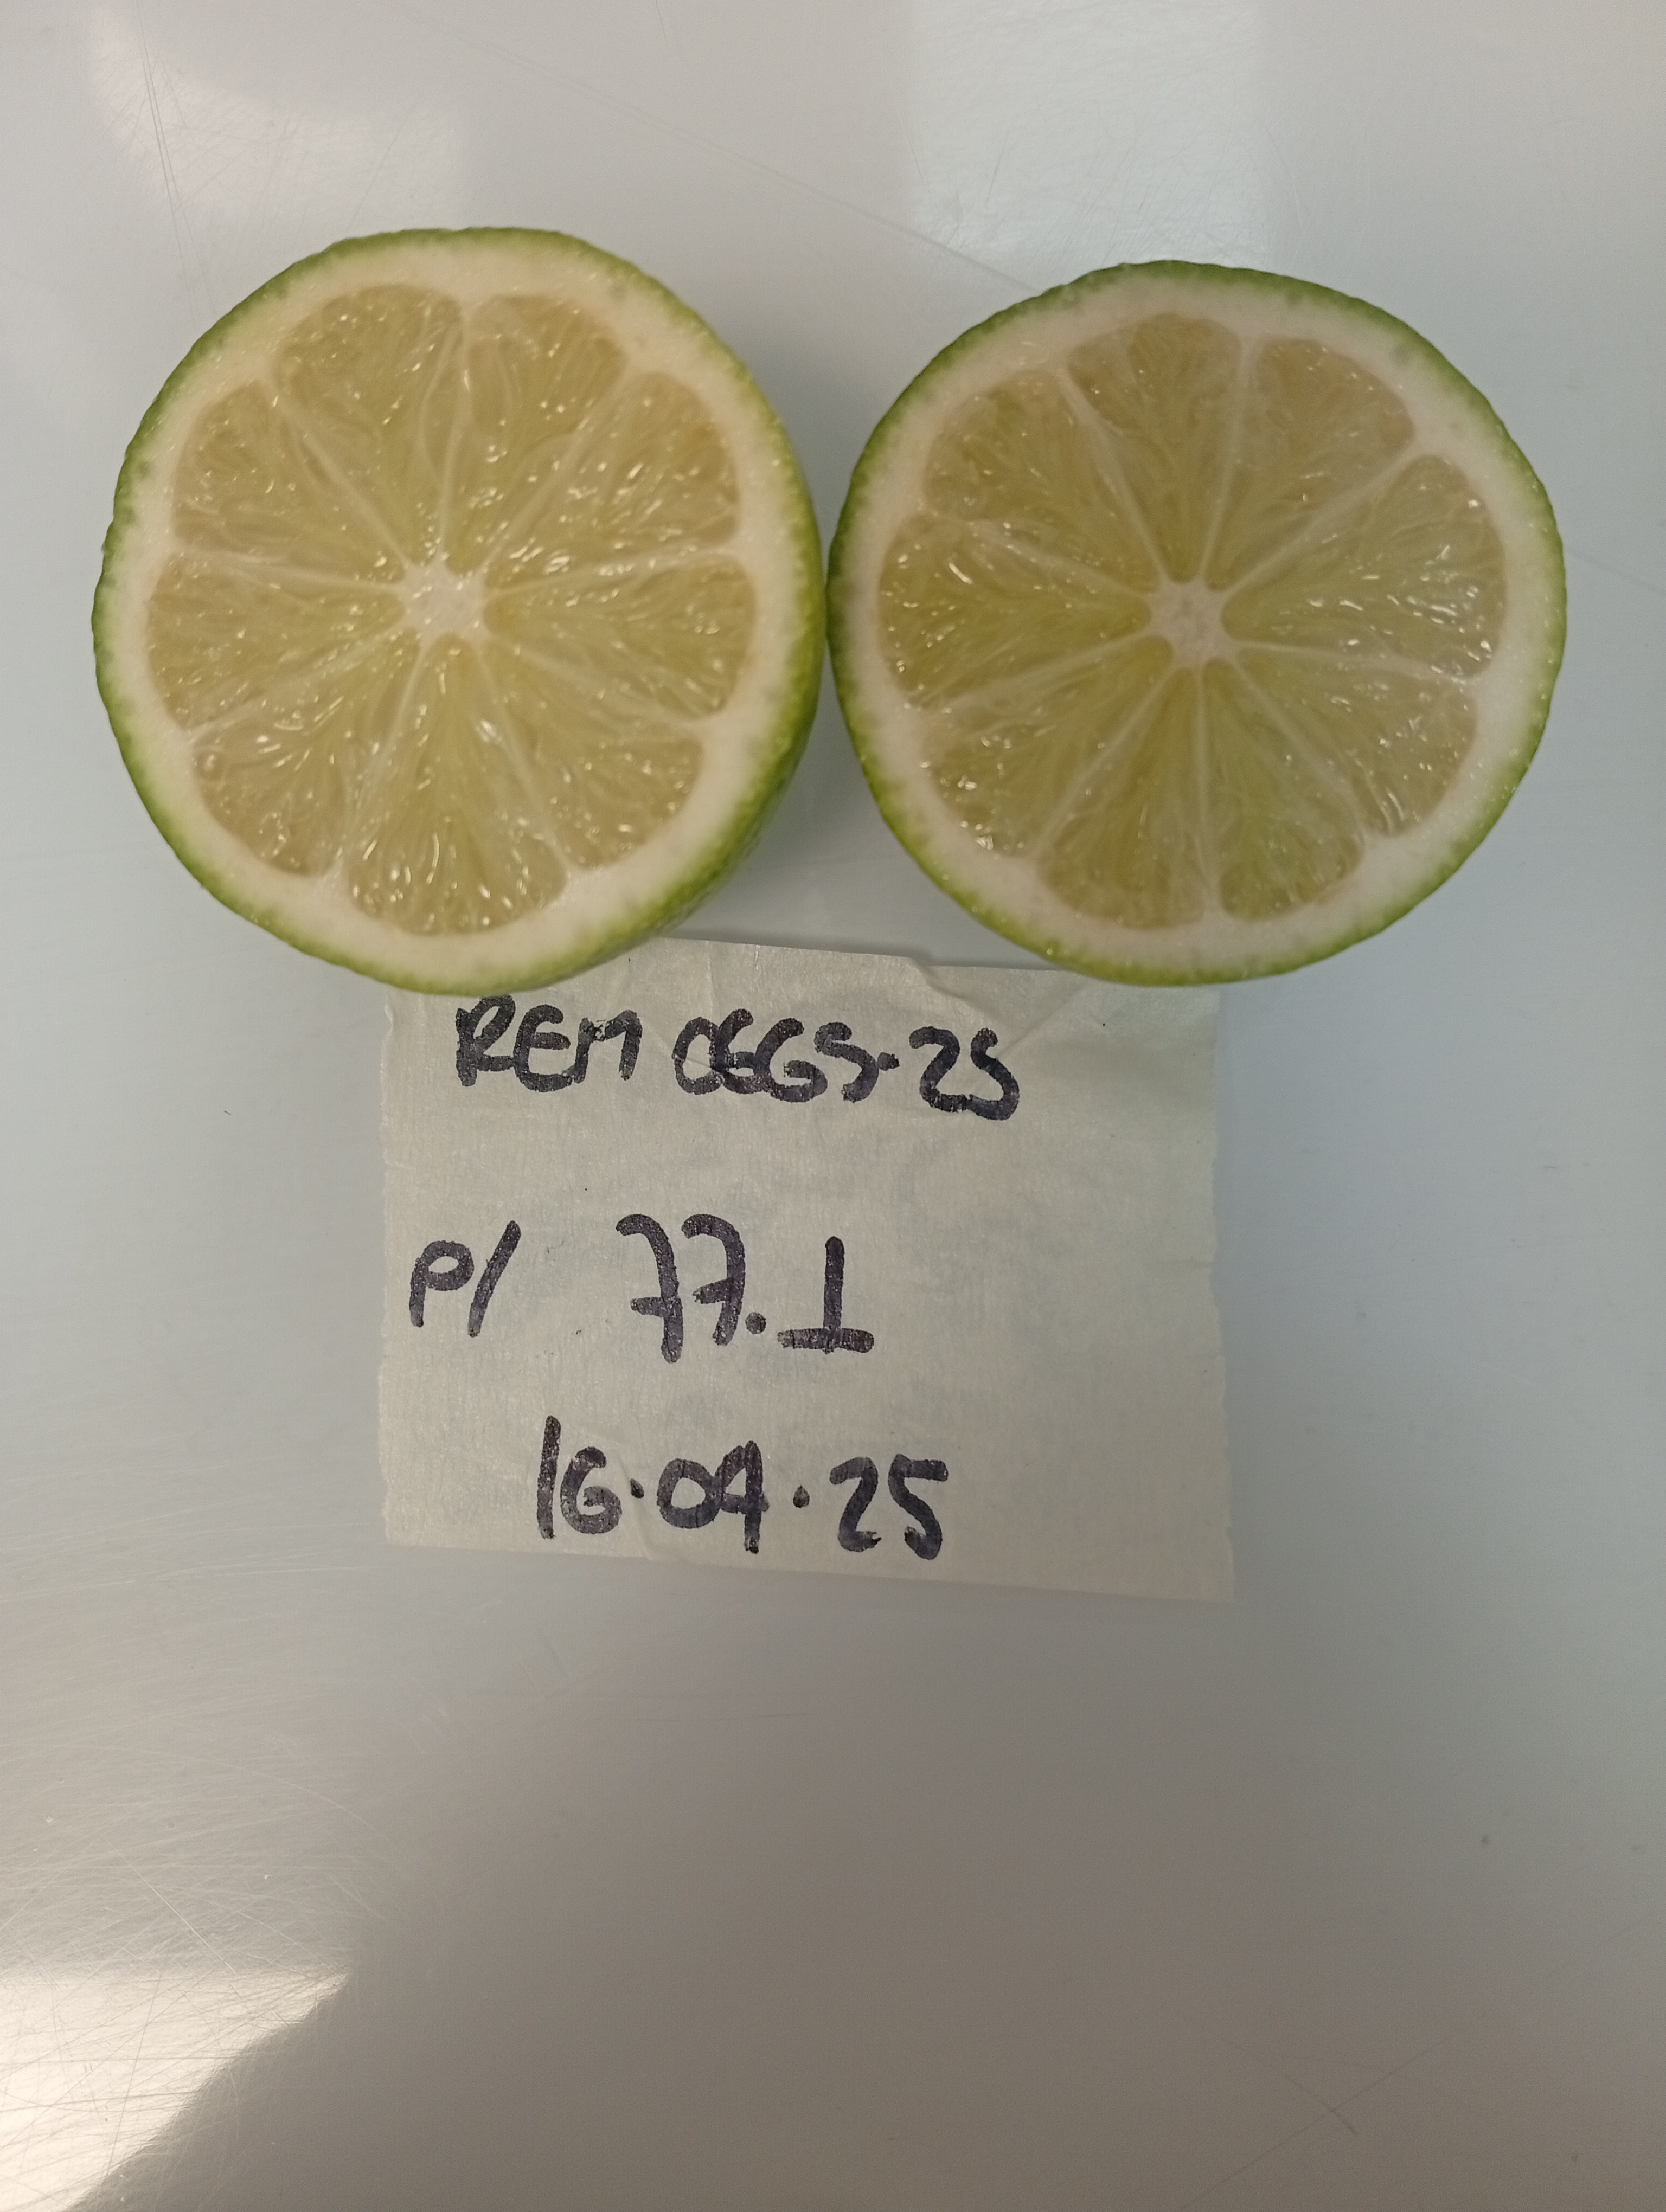 REM 0665-25
P/ 77.1
16.04.25